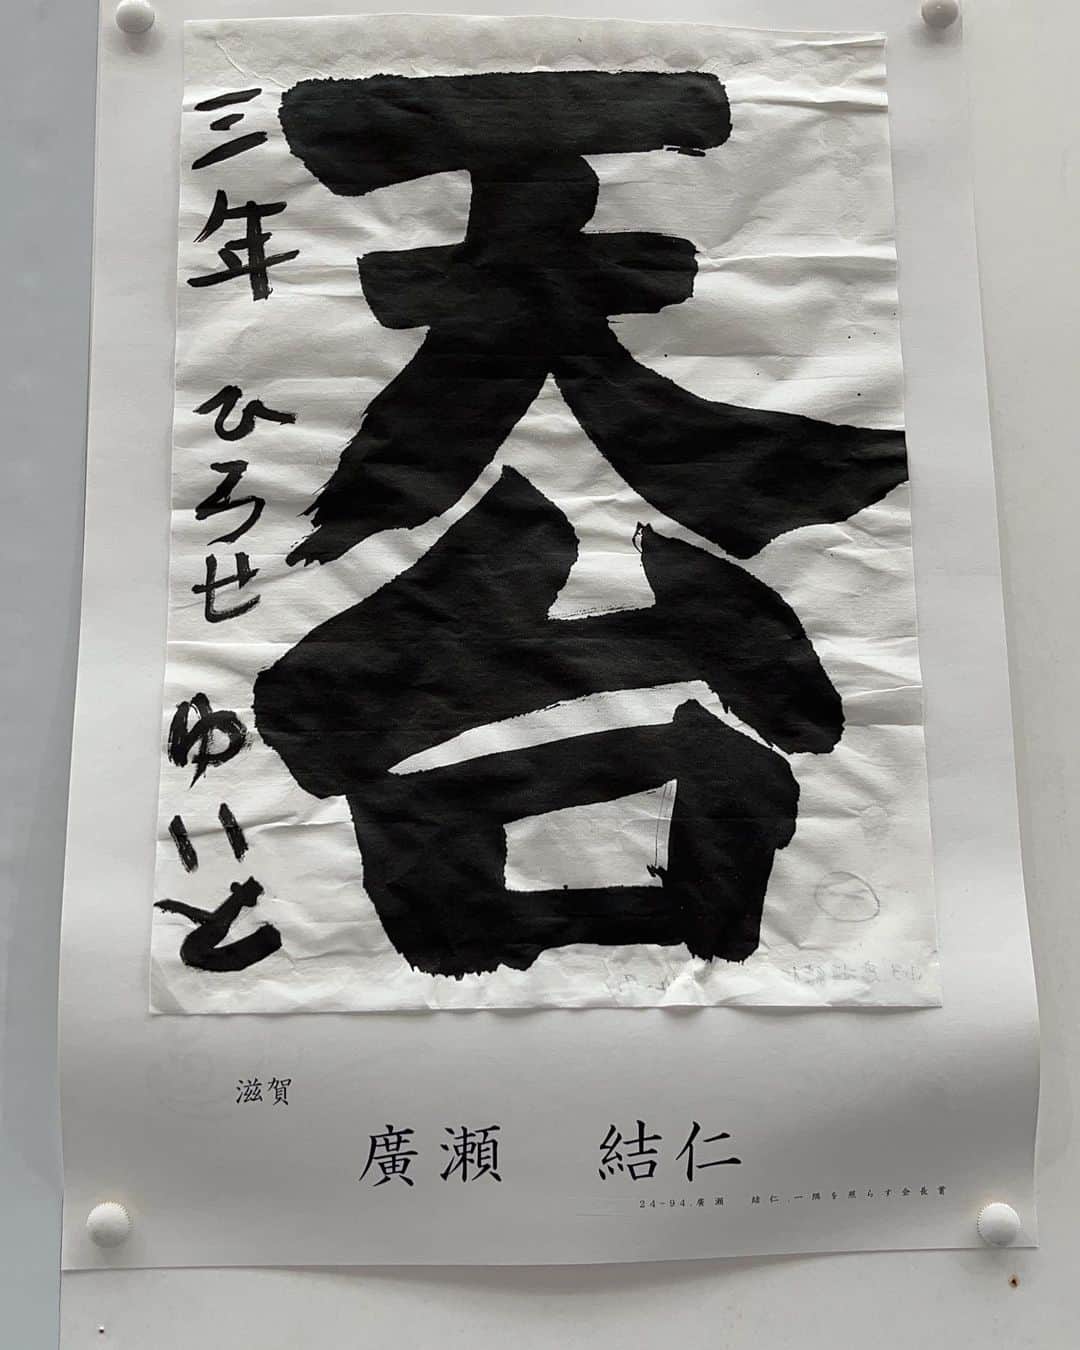 天台
三年 ひろせ ゆいと
滋賀
廣瀬 結仁
24-94.廣瀬 結仁.一隅を照らす会長賞